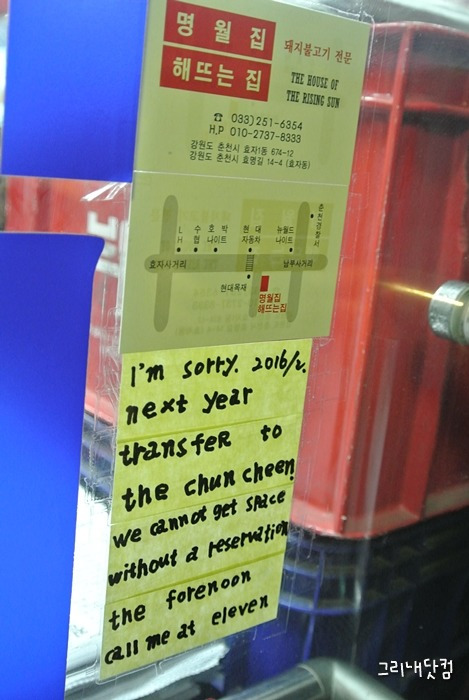 명월집
해뜨는집
돼지불고기 전문
THE HOUSE OF
THE RISING SUN
☎ 033)251-6354
H.P 010-2737-8333
강원도 춘천시 효자1동 674-12
강원도 춘천시 효명길 14-4 (효자동)
LH
수협
호박나이트
현대자동차
뉴월드나이트
춘천경찰서
효자사거리
남부사거리
현대목재
명월집
해뜨는집
I'm sorry. 2016/2.
next year
transfer to
the chuncheen!
we cannot get space
without a reservation
the forenoon
call me at eleven
그리내닷컴